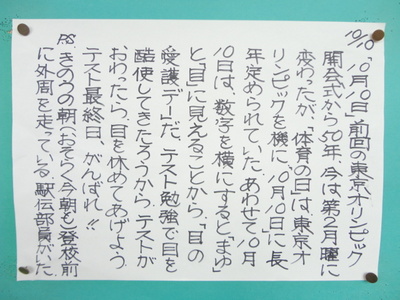 10/10「10月10日」前回の東京オリンピック
開会式から50年、今は第2月曜に
変わったが、「体育の日」は、東京オ
リンピックを機に、10月10日」に長
年定められていた。あわせて10月
10日は、数字を横にすると、「まゆ」
と「目」に見えることから、「目の
愛護デー」だ。テスト勉強で目を
酷使してきたろうから、テストが
おわったら、目を休めてあげよう。
テスト最終日、がんばれ!!
P.S. きのうの朝(おそらく今朝も)登校前
に外周を走っている駅伝部員がいた。